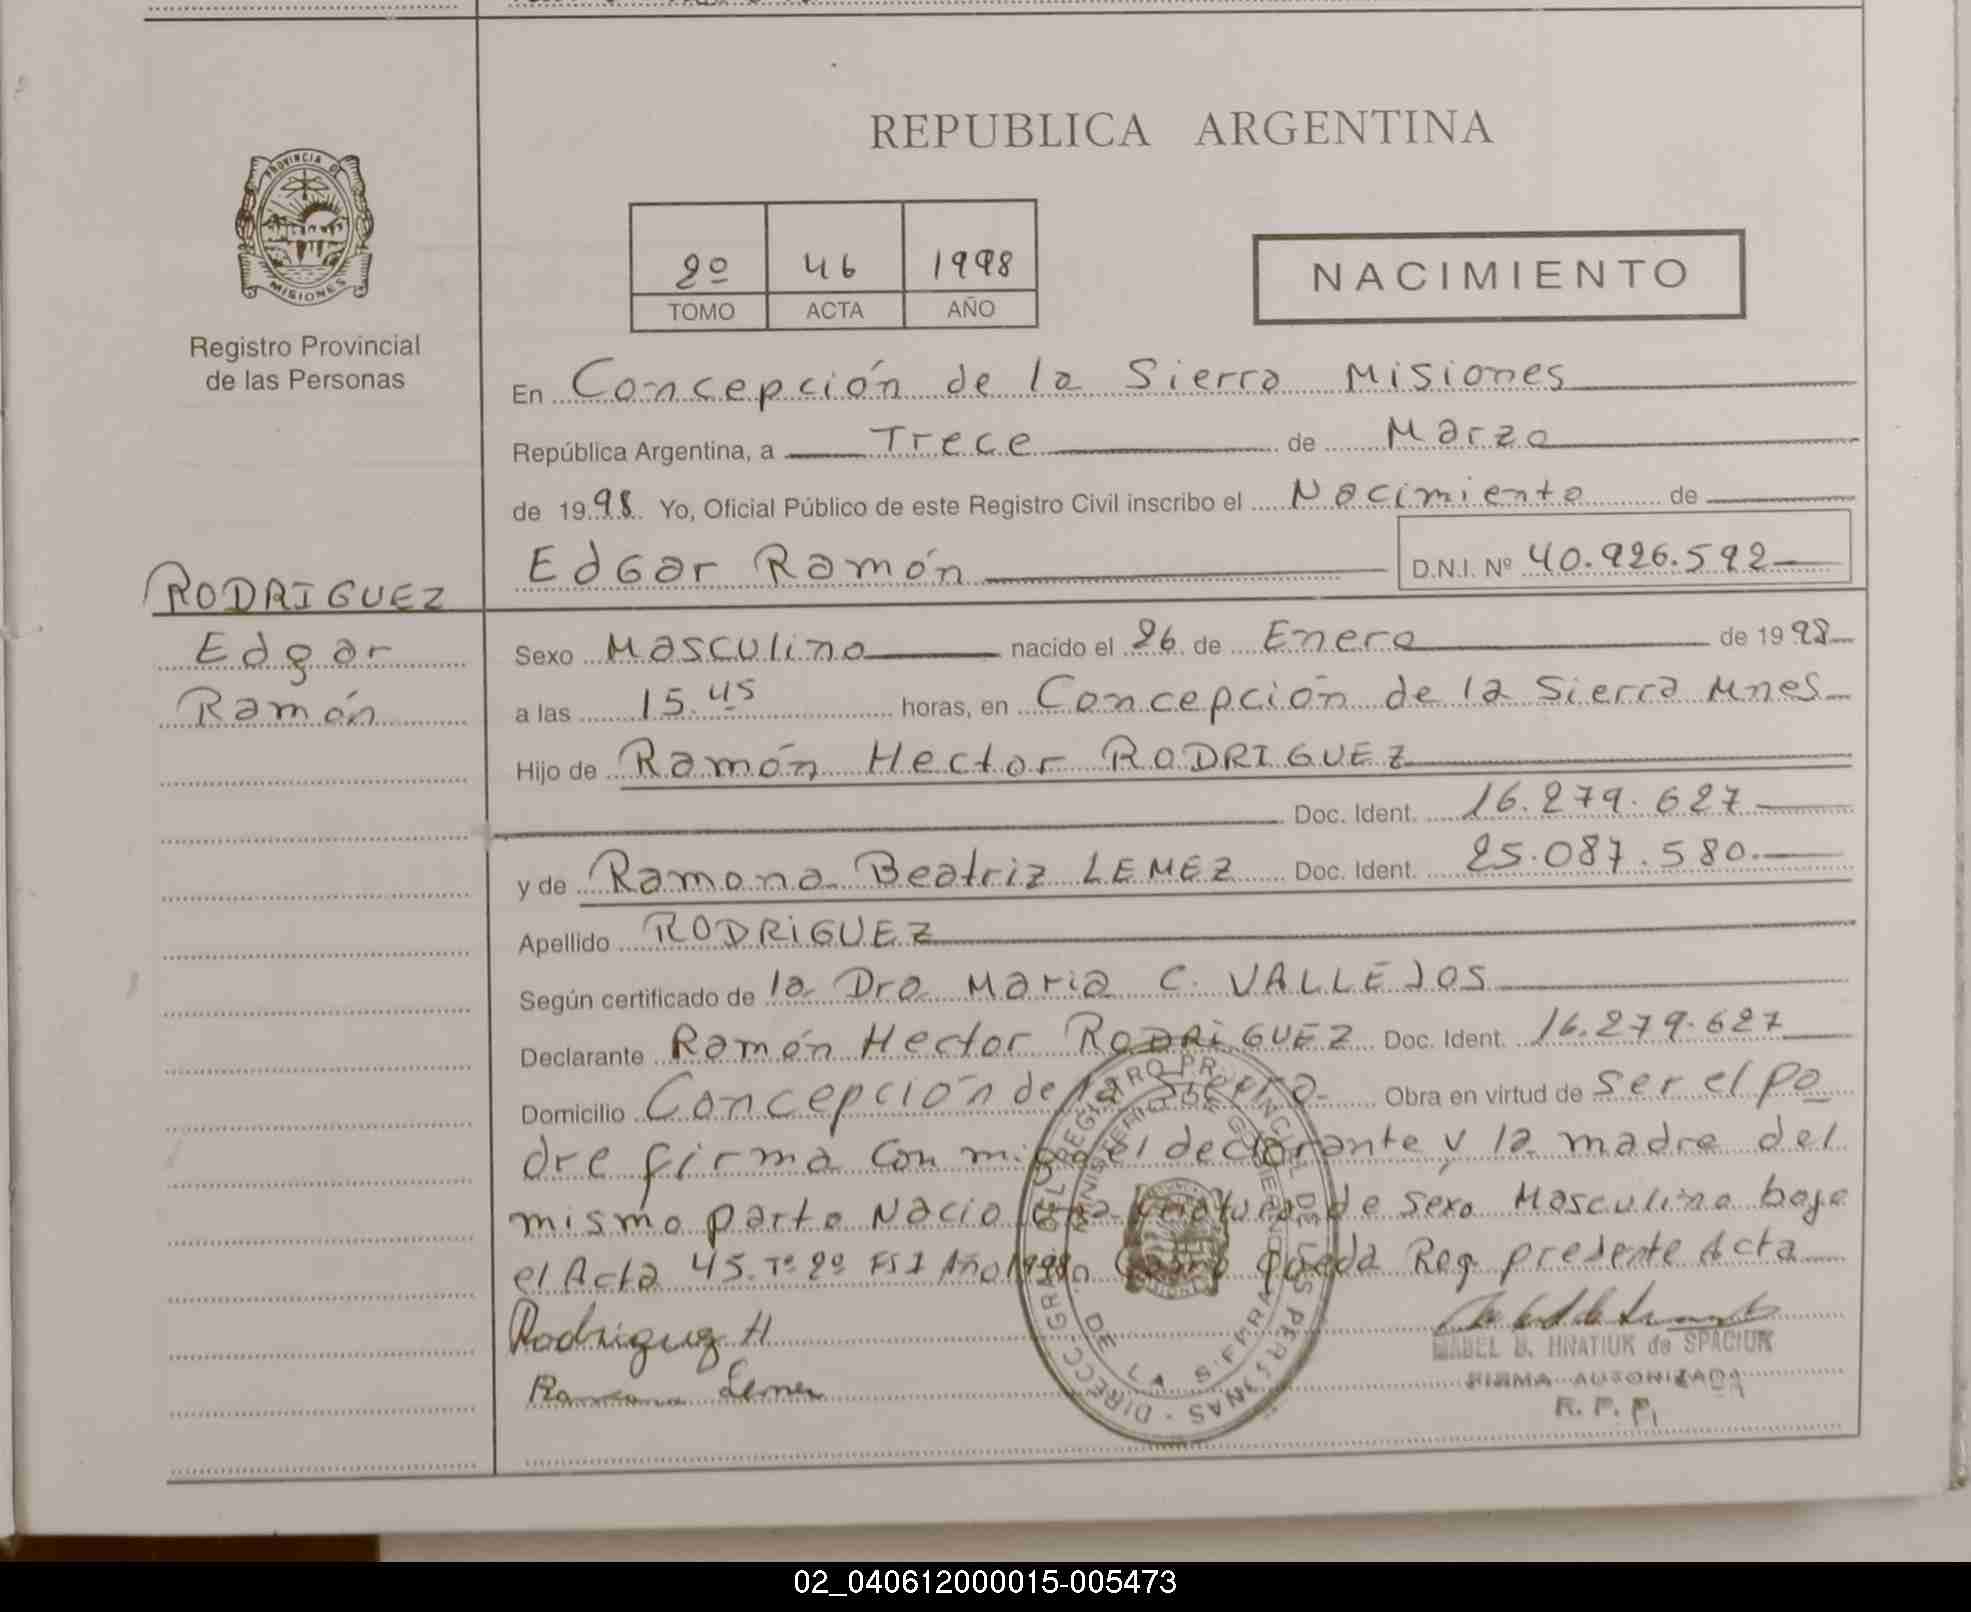 REPUBLICA ARGENTINA
PROVINCIA DE
MISIONES
Registro Provincial
de las Personas
2º 46 1998
TOMO ACTA AÑO
NACIMIENTO
En Concepción de la Sierra Misiones
República Argentina, a Trece de Marzo
de 1998 Yo, Oficial Público de este Registro Civil inscribo el Nacimiento de
Edgar Ramón D.N.I. Nº 40.926.592
RODRIGUEZ
Edgar
Ramón
Sexo Masculino nacido el 26 de Enero de 1998
a las 15.45 horas, en Concepción de la Sierra Mnes
Hijo de Ramón Hector RODRIGUEZ
Doc. Ident. 16.279.627
y de Ramona Beatriz LEMEZ Doc. Ident. 25.087.580.
Apellido RODRIGUEZ
Según certificado de la Dra Maria C. VALLEJOS
Declarante Ramón Hector RODRIGUEZ Doc. Ident. 16.279.627
Domicilio Concepción de la Sierra Obra en virtud de ser el pa
dre firma con migo el declarante y la madre del
mismo parto Nacio una criatura de sexo Masculino bajo
el Acta 45. Tº 2º Año 1998. Como queda Reg. presente Acta
Rodriguez H
Ramona Lemez
MABEL B. HNATIUK de SPACIUK
FIRMA AUTORIZADA
R. P. P.
DIRECC. GRAL. DEL REGISTRO PROVINCIAL DE LAS PERSONAS
MINISTERIO DE GOBIERNO
DE LA SIERRA
02_040612000015-005473